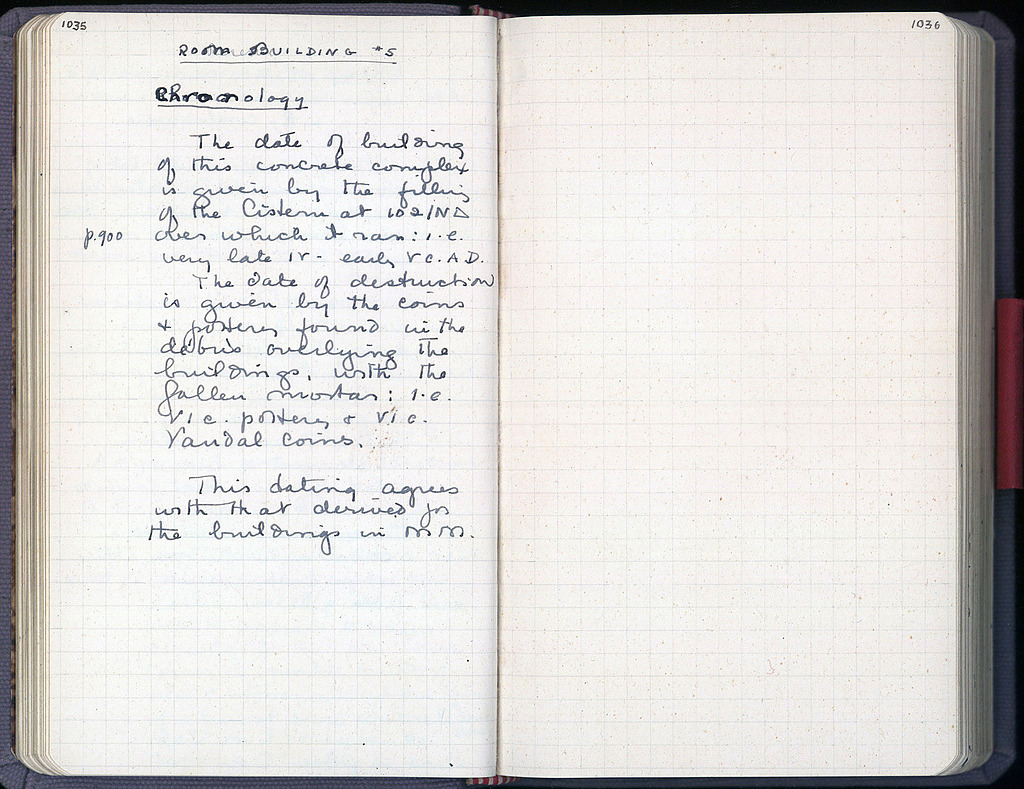 1035
ROOM BUILDING #5
Chronology
The date of building
of this concrete complex
is given by the filling
of the Cistern at 102/NΔ
p.900 over which it ran: i.e.
very late IV - early V c. A.D.
The date of destruction
is given by the coins
& pottery found in the
débris overlying the
buildings, with the
fallen mortar: i.e.
VI c. pottery & VI c.
Vandal coins.
This dating agrees
with that derived for
the buildings in MM.
1036